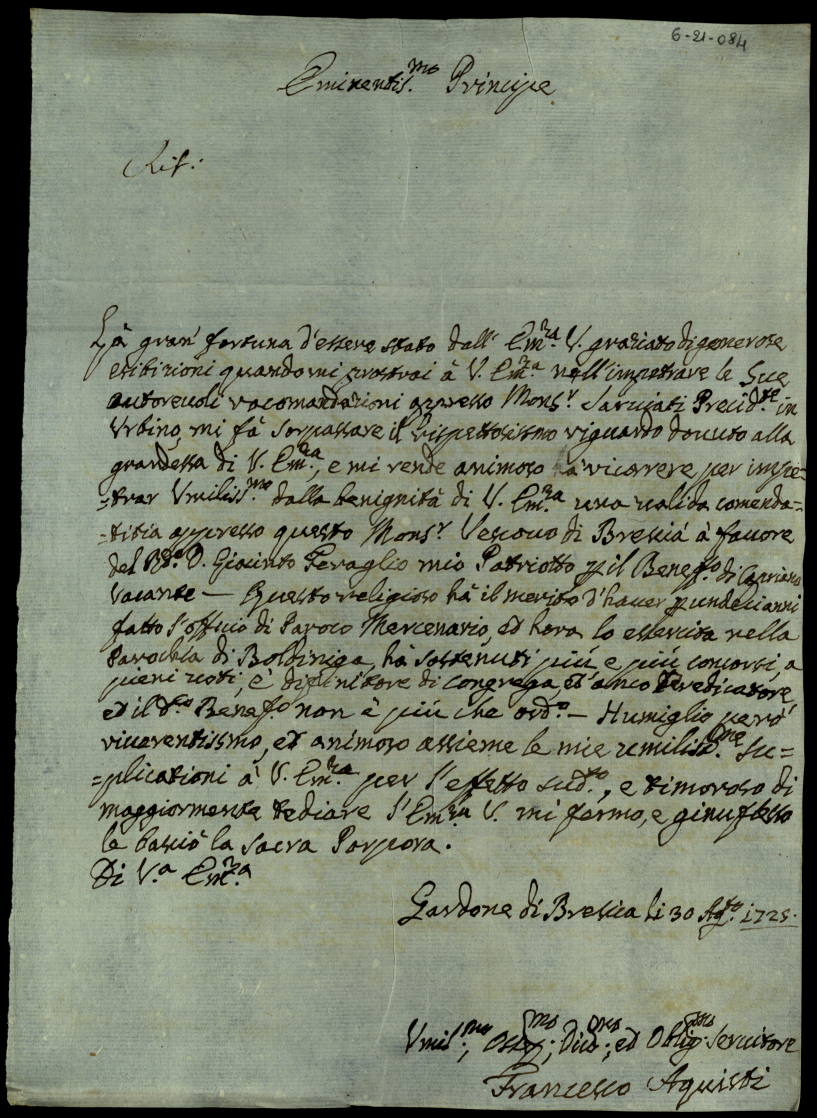 6-21-084
Eminentis.mo Principe
Ris:
La gran' fortuna d'essere stato dall' Em.za V. graziato di generose
esibizioni quando mi prostrai à V. Em.za nell'impetrare le Sue
autorevoli racomandazioni appresso Mons.r Salviati Presid.te in
Urbino, mi fà sorpassare il rispettosissmo riguardo dovuto alla
grandessa di V. Em.za, e mi rende animoso à ricorrere per impe=
=trar Umiliss.mo dalla benignità di V. Em.za una valida comenda=
=titia appresso questo Mons.r Vescovo di Brescia à favore
del R.do D. Giacinto Peraglio mio Patriotto p il Benef.o di Capriano
Vacante — Questo religioso hà il merito d'haver p undeci anni
fatto l'officio di Paroco Mercenario, ed hora lo essercita nella
Parochia di Boldiniga, hà sostenuti più e più concorsi, a
pieni voti, è difinitore di congrega, et anco Predicatore,
ed il d.o Benef.o non è più che ord.o — Humiglio però
riverentissmo, et animoso assieme le mie umiliss.me Su=
=plicationi à V. Em.za per l'effetto sud.to, e timoroso di
maggiormente tediare l'Em.za V. mi fermo, e ginuflesso
le bascio la sacra Porpora.
Di V.a Em.za
Gardone di Brescia li 30 Ag.to 1725.
Umil.mo, Osseq.mo; Div.mo; ed Oblig.mo Servitore
Francesco Aquisti